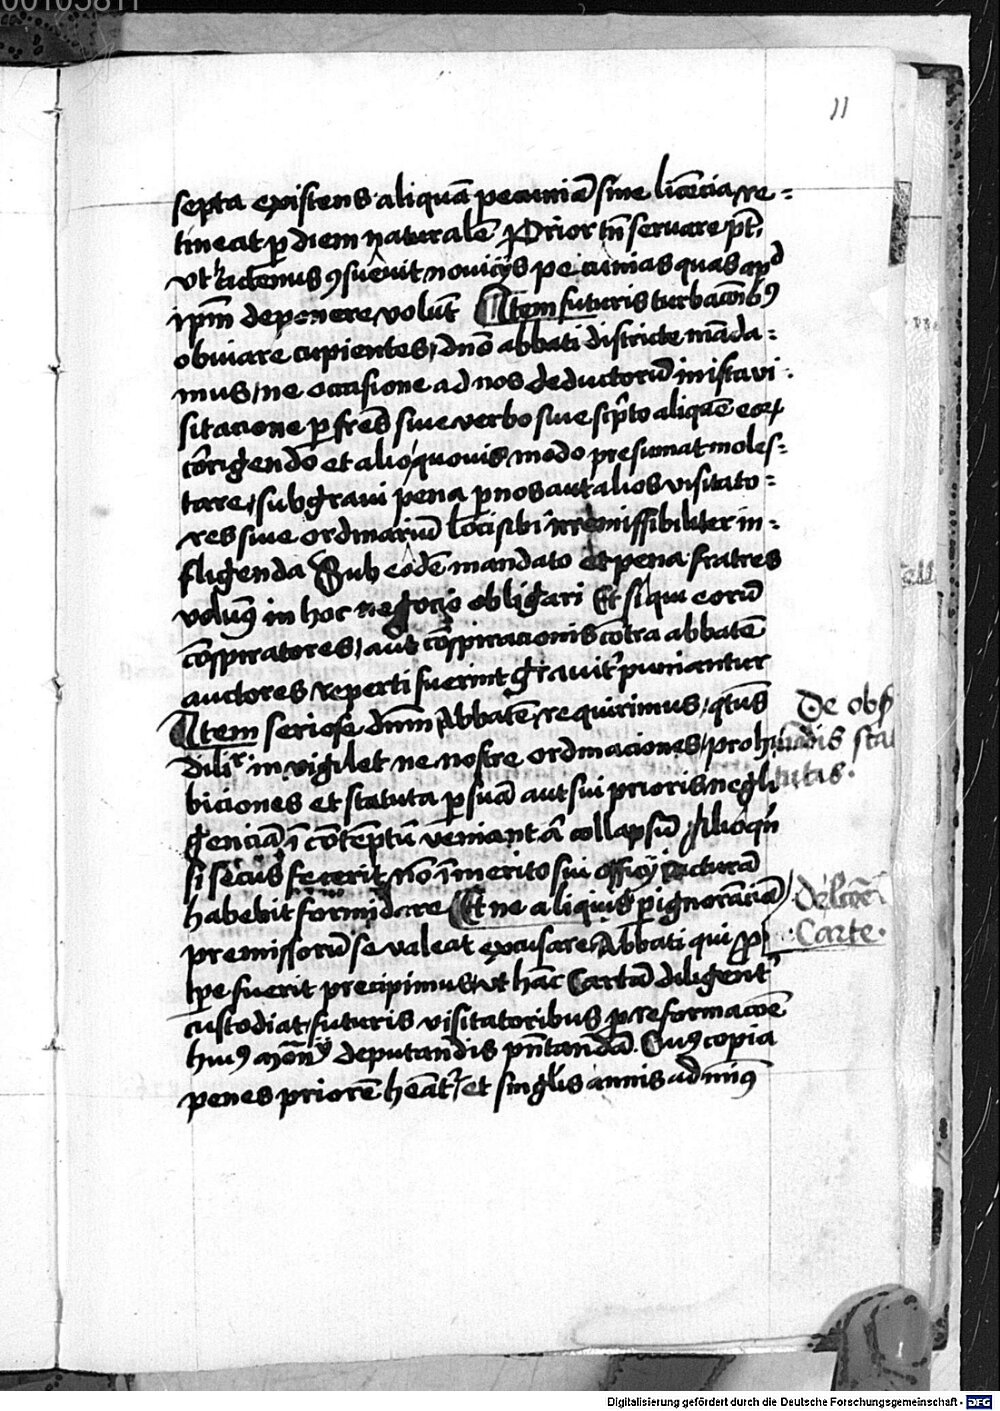 00105811
11
septa existens aliquā pecuniā sine licēcia re=
tineat p diem naturalē Prior tn̄ servare pt̄
vt hactenus ꝯsuevit noviciis pecunias quas apd
ipm̄ deponere volūt Item futuris turbacōibꝰ
obviare cupientes, dnō abbati districte māda=
mus, ne occasione ad nos deductorū in ista vi
sitacione p frēs sive verbo sive scpto aliquē eoꝝ
cōrigendo et alio quovis modo presumat moles=
tare, sub gravi pena p nos aut alios visitato=
res sive ordinariū loci sibi irremissibiliter in=
fligenda Sub eodē mandato et pena fratres
volumꝰ in hoc negocio obligari Et si qui eorū
cōspiratores, aut cōspiracionis cōtra abbatē
auctores reperti fuerint gravitꝰ puniantur
Item seriose dnm̄ Abbatē requirimus, qtūs
dilitꝰ invigilet ne nostre ordinaciones, prohi
biciones et statuta p suā aut sui prioris negli
genciā ī cōtēptū veniant ā collapsū, alioqn̄
si secus fecerit, nō īmerito sui officij iacturā
habebit formidare Et ne aliquis p ignorāciā
premissorū se valeat excusare, Abbati qui p
tpe fuerit precipimus vt hāc Cartā diligentꝰ
custodiat, futuris visitatoribus p reformacōe
huiꝰ mōn̄ij deputandis pn̄tandā. Cuiꝰ copia
penes priorē heātꝰ, et singlis annis ad minꝰ
De obs
uādis sta
tutis.
De lcōe
Carte.
Digitalisierung gefördert durch die Deutsche Forschungsgemeinschaft - DFG